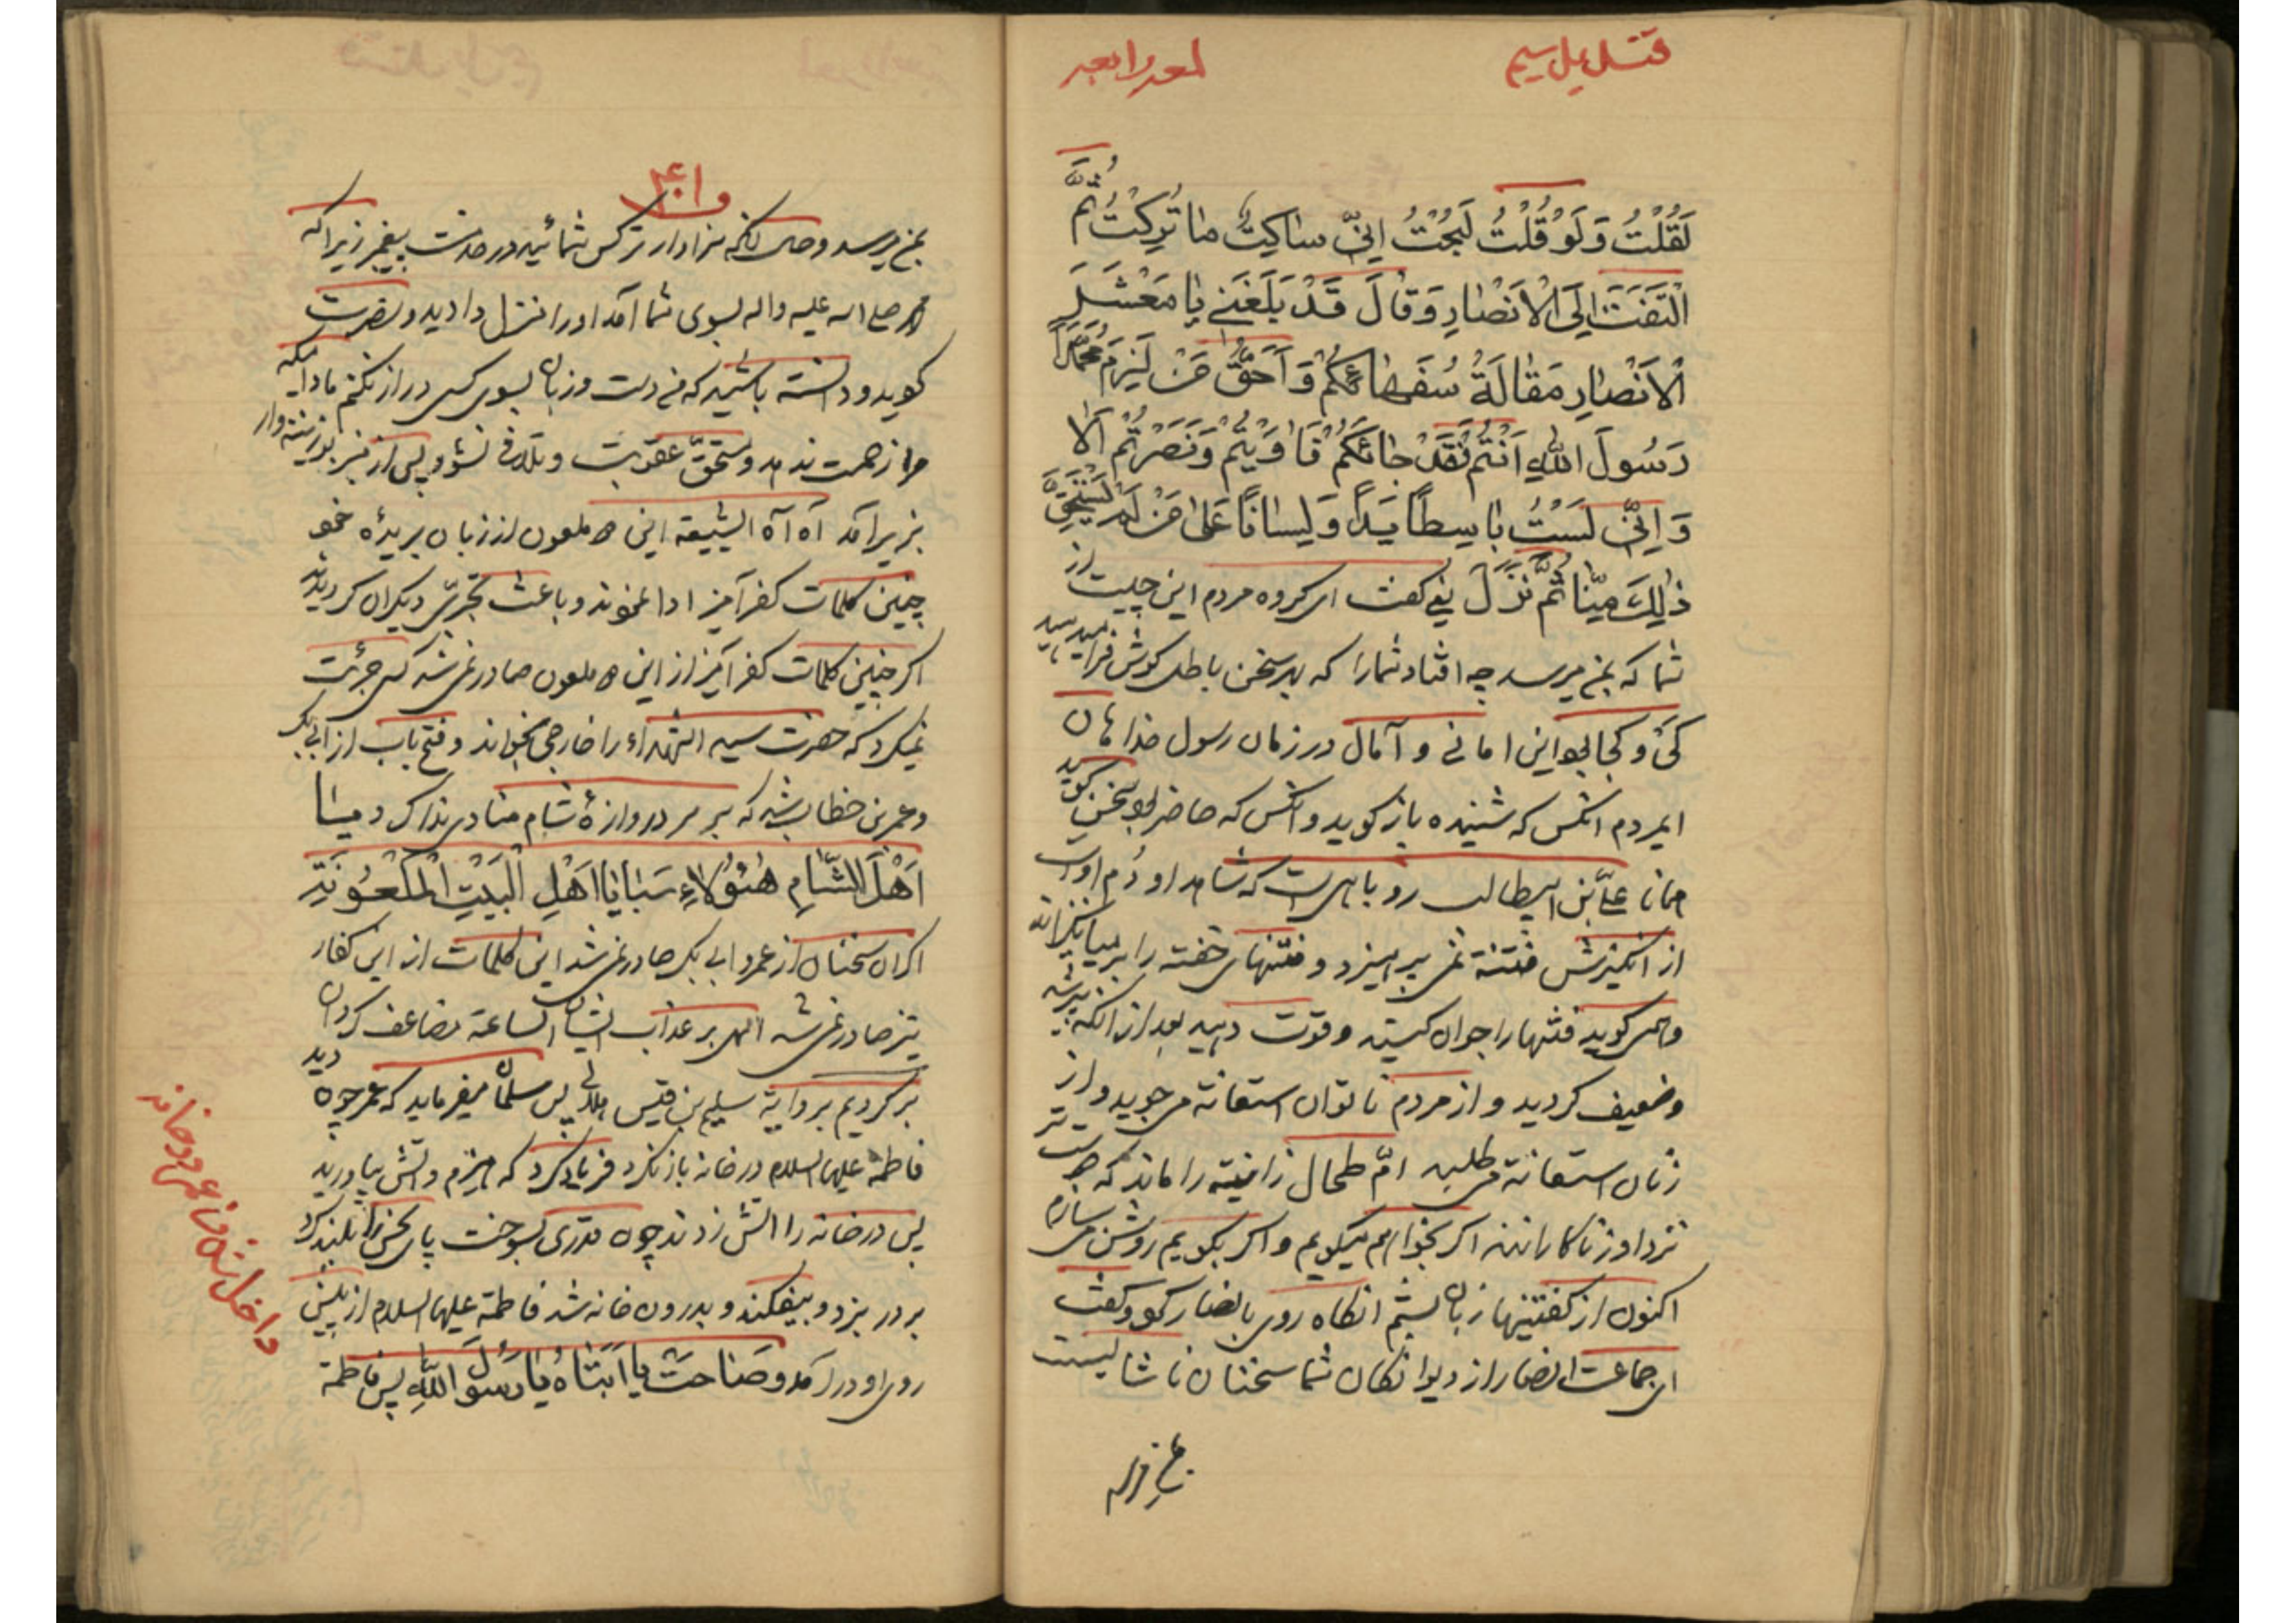 قتل علی سیم
لَقُلْتُ وَلَوْ قُلْتُ لَبُحْتُ اِنّی ساکِتٌ ما تُرِکْتُ ثُمَّ
الْتَفَتَ اِلَی الْاَنْصارِ وَقالَ قَدْ بَلَغَنی یا مَعْشَرَ
الْاَنْصارِ مَقالَةُ سُفَهائِکُمْ وَ اَحَقُّ مَنْ لَزِمَ عَهْدَ
رَسُولَ اللّهِ اَنْتُمْ فَقَدْ جائَکُمْ فَاوَیْتُمْ وَنَصَرْتُمْ اَلا
وَ اِنّی لَسْتُ باسِطاً یَداً وَ لِساناً عَلی مَنْ لَمْ یَسْتَحِقَّ
ذٰلِکَ مِنّا ثُمَّ نَزَلَ یعنی گفت ای گروه مردم این چیست از
شما که بمن میرسد چه افتاد شما را که بهر سخن باطل گوش فرا میدهید
کی و کجا بود این امانی و آمال در زمان رسول خدا هان
ایمردم آنکس که شنیده باز گوید و آنکس که حاضر بود سخن گوید
همانا علیّ بن ابیطالب روباهی است که شاهد او دُم اوست
از انگیزش فتنه نمی پرهیزد و فتنهای خفته را بر می‌انگیزاند
و همی گوید فتنها را جوان کنید و قوت دهید بعد از آنکه پیر شد
و ضعیف گردید و از مردم ناتوان استعانة می جوید و از
زنان استعانة می طلبد امّ طحال زانیه را ماند که
نزد او زناکاراننند اگر بخواهم میگویم و اگر بگویم روشن می سازم
اکنون از گفتنیها زبان بستم انگاه روی بانصار کرد و گفت
ای جماعت انصار از دیوانگان شما سخنان ناشایست
بمن میرسد
۴۰۱
بمن میرسد و حال آنکه سزاوارتر کس شمائید در خدمت پیغمبر زیرا که
صلی الله علیه و اله بسوی شما آمد او را منزل دادید و نصرت
کردید و دانسته باشید که من دست و زبان بسوی کسی دراز نکنم مادامیکه
مرا زحمت ندهد و مستحقّ عقوبت و تلافی نشود پس از منبر
بزیر آمد آه آه الشیعة این ملعون از زبان بریده خود
چنین کلمات کفرآمیز ادا نمود و باعث تجرّی دیگران گردید
اگر چنین کلمات کفرآمیز از این ملعون صادر نمی شد کی جرئت
نمیکرد که حضرت سید الشهداء را خارجی بخواند و فتح باب از ابی بکر
و عمر بن خطاب شد که بر سر دروازۀ شام منادی ندا کرد
اَهْلَ الشّامِ هٰؤُلاءِ سَبایا اَهْلِ الْبَیْتِ الْمَلْعُونَةِ
اگر آن سخنان از عمر و ابی بکر صادر نمی شد این کلمات از این کفار
نیز صادر نمی شد الهی بر عذاب ایشان الساعة مضاعف گردان
برگردیم بر روایة سلیم بن قیس هلالی پس سلمان میفرماید که عمر چون دید
فاطمه علیها السلام در خانه باز نکرد فریاد کرد که هیزم و آتش بیاورید
پس در خانه را آتش زدند چون قدری بسوخت پای نحس را بلند کرد
بر در بزد و بیفکند و بدرون خانه شد فاطمة علیها السلام از پیش
روی او درآمد وصَاحَتْ یا اَبَتاهُ یا رَسُولَ اللّهِ پس فاطمة
داخل شدن عمر در خانه